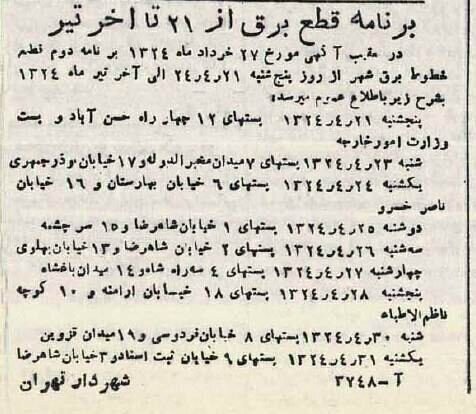 برنامه قطع برق از ۲۱ تا آخر تیر
در عقیب آگهی مورخ ۲۷ خرداد ماه ۱۳۲۴ برنامه دوم قطع
خطوط برق شهر از روز پنج‌شنبه ۲۱ر۴ر۲۴ الی آخر تیر ماه ۱۳۲۴
بشرح زیر باطلاع عموم میرسد:
پنجشنبه ۲۱ر۴ر۱۳۲۴ پستهای ۱۲ چهار راه حسن آباد و پست
وزارت امورخارجه
شنبه ۲۳ر۴ر۱۳۲۴ پستهای ۷ میدان مخبرالدوله و ۱۷ خیابان بوذرجمهری
یکشنبه ۲۴ر۴ر۱۳۲۴ پستهای ۶ خیابان بهارستان و ۱۶ خیابان
ناصر خسرو
دوشنبه ۲۵ر۴ر۱۳۲۴ پستهای ۱ خیابان شاهرضا و ۱۵ سرچشمه
سه‌شنبه ۲۶ر۴ر۱۳۲۴ پستهای ۲ خیابان شاهرضا و ۱۳ خیابان پهلوی
چهارشنبه ۲۷ر۴ر۱۳۲۴ پستهای ۴ سه راه شاه و ۱۴ میدان باغشاه
پنجشنبه ۲۸ر۴ر۱۳۲۴ پستهای ۱۸ خیابان ارامنه و ۱۰ کوچه
ناظم‌الاطباء
شنبه ۳۰ر۴ر۱۳۲۴ پستهای ۸ خیابان فردوسی و ۱۹ میدان قزوین
یکشنبه ۳۱ر۴ر۱۳۲۴ پستهای ۹ خیابان ثبت اسناد و ۳ خیابان شاهرضا
آ-۳۷۴۸ شهردار تهران